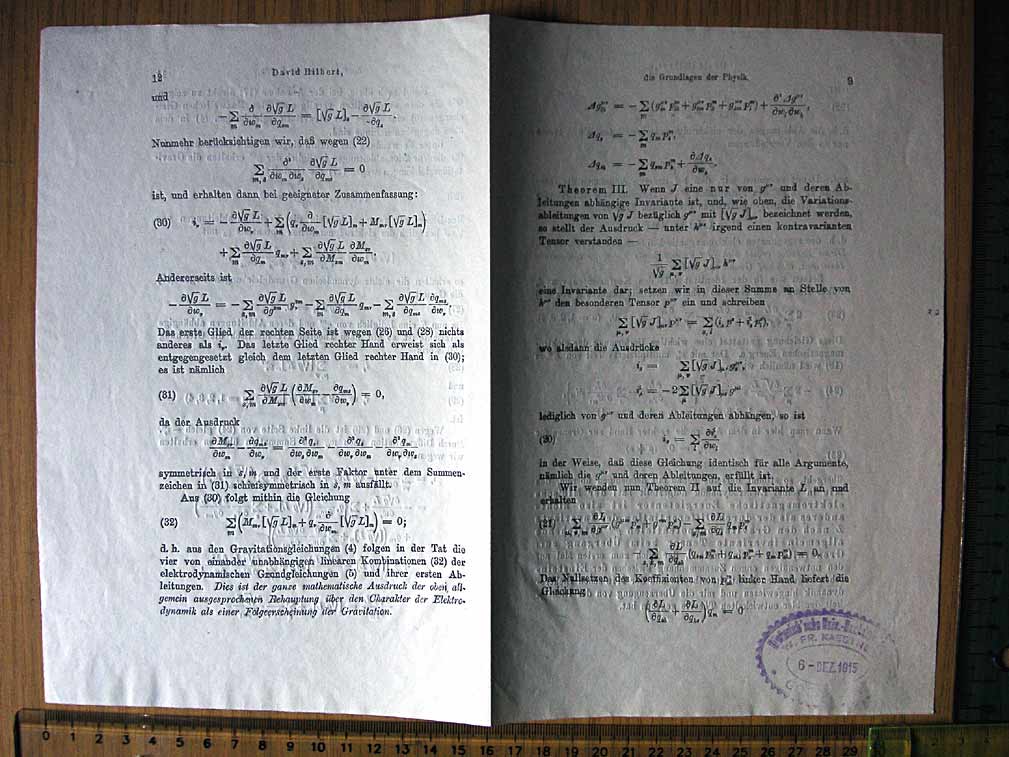 12
David Hilbert,
und
−∑_m ∂/∂w_m ∂√g L/∂q_sm = [√g L]_s − ∂√g L/∂q_s.
Nunmehr berücksichtigen wir, daß wegen (22)
∑_{m,s} ∂²/∂w_m ∂w_s ∂√g L/∂q_ms = 0
ist, und erhalten dann bei geeigneter Zusammenfassung:
(30) i_ν = −∂√g L/∂w_ν + ∑_m (q_ν ∂/∂w_m [√g L]_m + M_mν [√g L]_m)
Andererseits ist
Das erste Glied der rechten Seite ist wegen (26) und (28) nichts
anderes als i_ν. Das letzte Glied rechter Hand erweist sich als
entgegengesetzt gleich dem letzten Glied rechter Hand in (30);
es ist nämlich
(31) ∑_{s,m} ∂√g L/∂M_sm (∂M_sν/∂w_m − ∂q_ms/∂w_ν) = 0,
da der Ausdruck
symmetrisch in s, m und der erste Faktor unter dem Summen-
zeichen in (31) schiefsymmetrisch in s, m ausfällt.
Aus (30) folgt mithin die Gleichung
(32) ∑_m (M_mν [√g L]_m + q_ν ∂/∂w_m [√g L]_m) = 0;
d. h. aus den Gravitationsgleichungen (4) folgen in der Tat die
vier von einander unabhängigen linearen Kombinationen (32) der
elektrodynamischen Grundgleichungen (5) und ihrer ersten Ab-
leitungen. Dies ist der ganze mathematische Ausdruck der oben all-
gemein ausgesprochenen Behauptung über den Charakter der Elektro-
dynamik als einer Folgeerscheinung der Gravitation.
die Grundlagen der Physik.
9
Theorem III. Wenn J eine nur von g^μν und deren Ab-
leitungen abhängige Invariante ist, und, wie oben, die Variations-
ableitungen von √g J bezüglich g^μν mit [√g J]_μν bezeichnet werden,
so stellt der Ausdruck — unter h^μν irgend einen kontravarianten
Tensor verstanden —
1/√g ∑_{μ,ν} [√g J]_μν h^μν
eine Invariante dar; setzen wir in dieser Summe an Stelle von
h^μν den besonderen Tensor p^μν ein und schreiben
∑_{μ,ν} [√g J]_μν p^μν = ∑_{s,l} (i_s p^s + i_s^l p_l^s),
wo alsdann die Ausdrücke
i_s = ∑_{μ,ν} [√g J]_μν g_s^μν,
i_s^l = −2 ∑_μ [√g J]_μs g^μl
lediglich von g^μν und deren Ableitungen abhängen, so ist
(20) i_s = ∑_l ∂i_s^l/∂w_l
in der Weise, daß diese Gleichung identisch für alle Argumente,
nämlich die g^μν und deren Ableitungen, erfüllt ist.
Wir wenden nun Theorem II auf die Invariante L an und
erhalten
(21)
Das Nullsetzen der Koeffizienten von p^m_sk linker Hand liefert die
Gleichung
(∂L/∂q_sk + ∂L/∂q_ks) q_m = 0
W. FR. KAESTNER
6 - DEZ. 1915
0 1 2 3 4 5 6 7 8 9 10 11 12 13 14 15 16 17 18 19 20 21 22 23 24 25 26 27 28 29